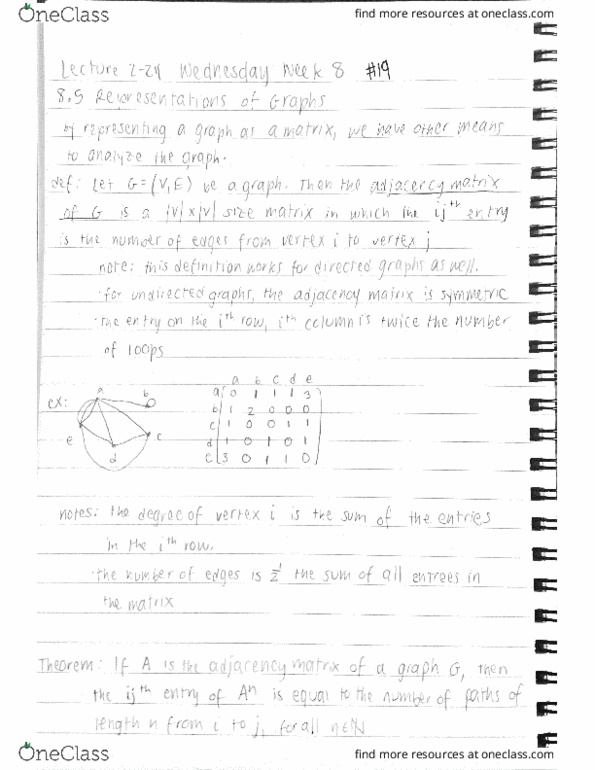 OneClass
find more resources at oneclass.com
Lecture 2-24 Wednesday Week 8 #19
8.5 Representations of Graphs
by representing a graph as a matrix, we have other means
to analyze the graph.
def: Let G=(V,E) be a graph. Then the adjacency matrix
of G is a |V|x|V| size matrix in which the ij^th entry
is the number of edges from vertex i to vertex j
note: this definition works for directed graphs as well.
·for undirected graphs, the adjacency matrix is symmetric
·the entry on the i^th row, i^th column is twice the number
of loops
a b c d e
ex: a b a 0 1 1 1 3
b 1 2 0 0 0
c 1 0 0 1 1
e c d 1 0 1 0 1
d e 3 0 1 1 0
notes: the degree of vertex i is the sum of the entries
in the i^th row.
·the number of edges is 1/2 the sum of all entrees in
the matrix
Theorem: If A is the adjacency matrix of a graph G, then
the ij^th entry of A^n is equal to the number of paths of
length n from i to j, for all n∈ℕ
OneClass
find more resources at oneclass.com